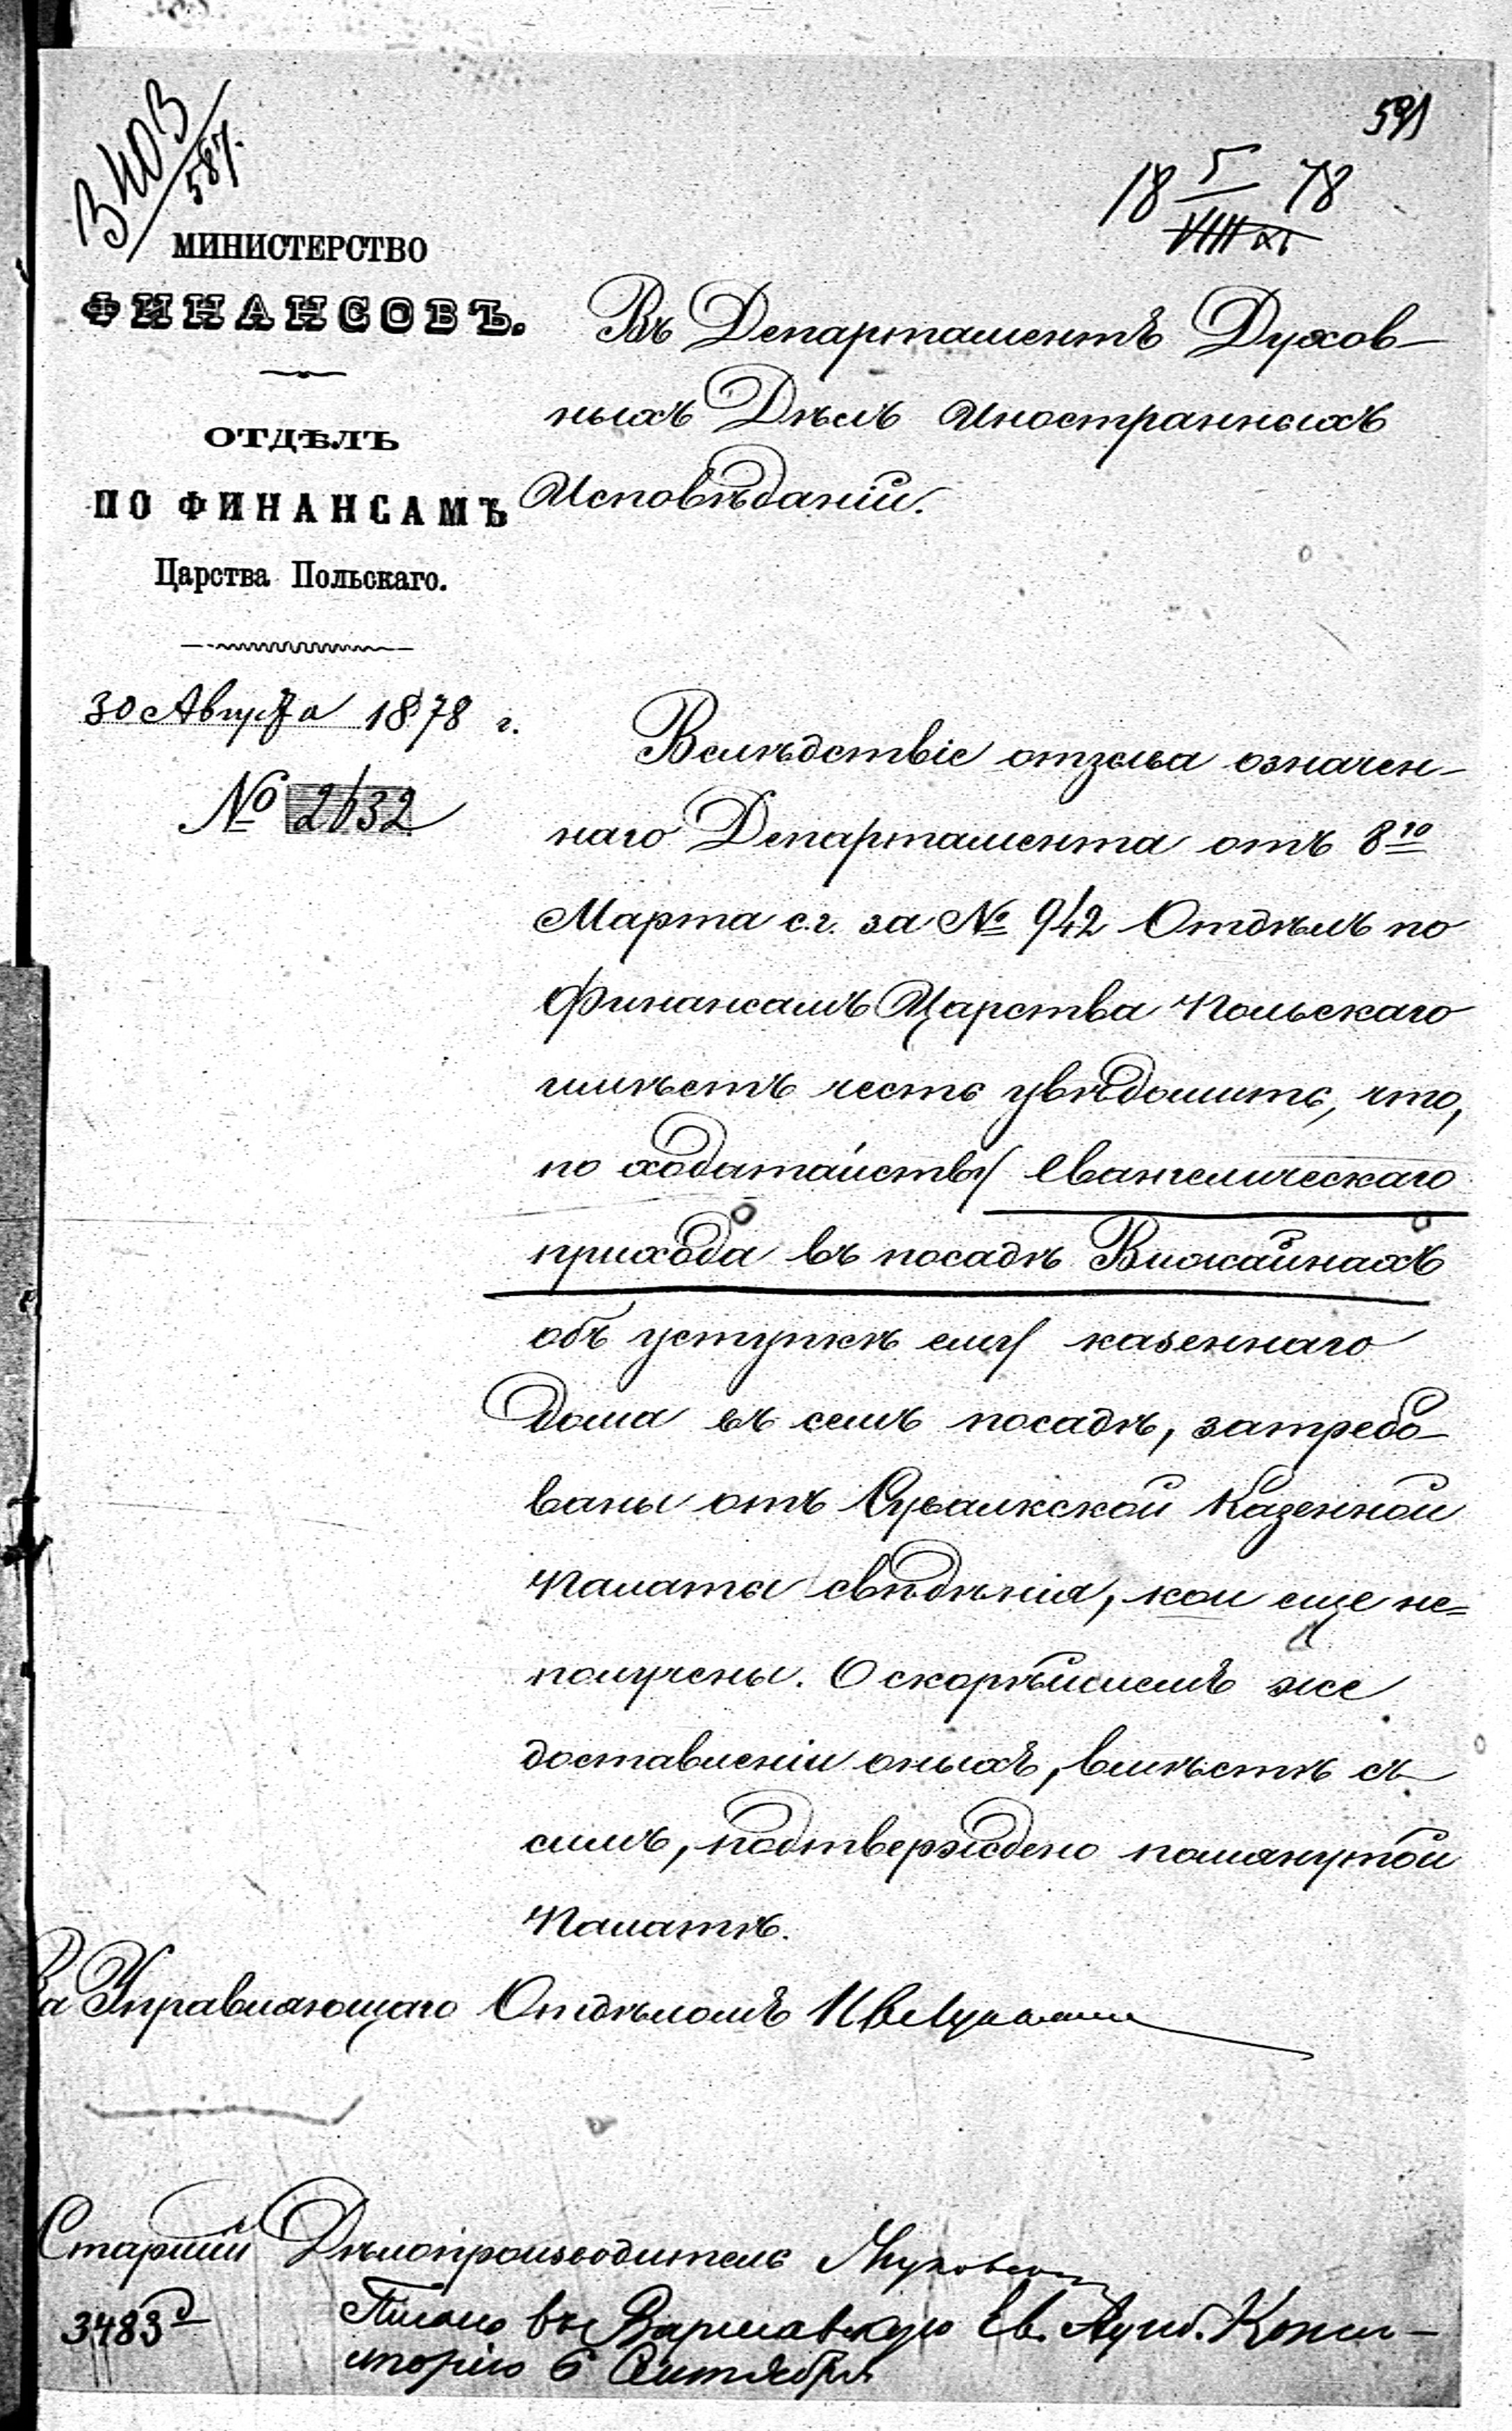 591
3403/587.
18 5/VIII 78
МИНИСТЕРСТВО
ФИНАНСОВЪ.
ОТДѢЛЪ
ПО ФИНАНСАМЪ
Царства Польскаго.
30 Августа 1878 г.
№ 2632
Въ Департаментъ Духов-
ныхъ Дѣлъ Иностранныхъ
Исповѣданій.
Вслѣдствіе отзыва означен-
наго Департамента отъ 8го
Марта с.г. за № 942 Отдѣлъ по
Финансамъ Царства Польскаго
имѣетъ честь увѣдомить, что,
по ходатайству Евангелическаго
прихода въ посадѣ Вижайнахъ
объ уступкѣ ему казеннаго
дома въ семъ посадѣ, затребо-
ваны отъ Сувалкской Казенной
Палаты свѣдѣнія, кои еще не=
получены. О скорѣйшемъ же
доставленіи оныхъ, вмѣстѣ съ
симъ, подтверждено помянутой
Палатѣ.
За Управляющаго Отдѣломъ
Старшій Дѣлопроизводитель
3483
Писано въ Варшавскую Ев. Аугсб. Консис-
торію 6 Сентября